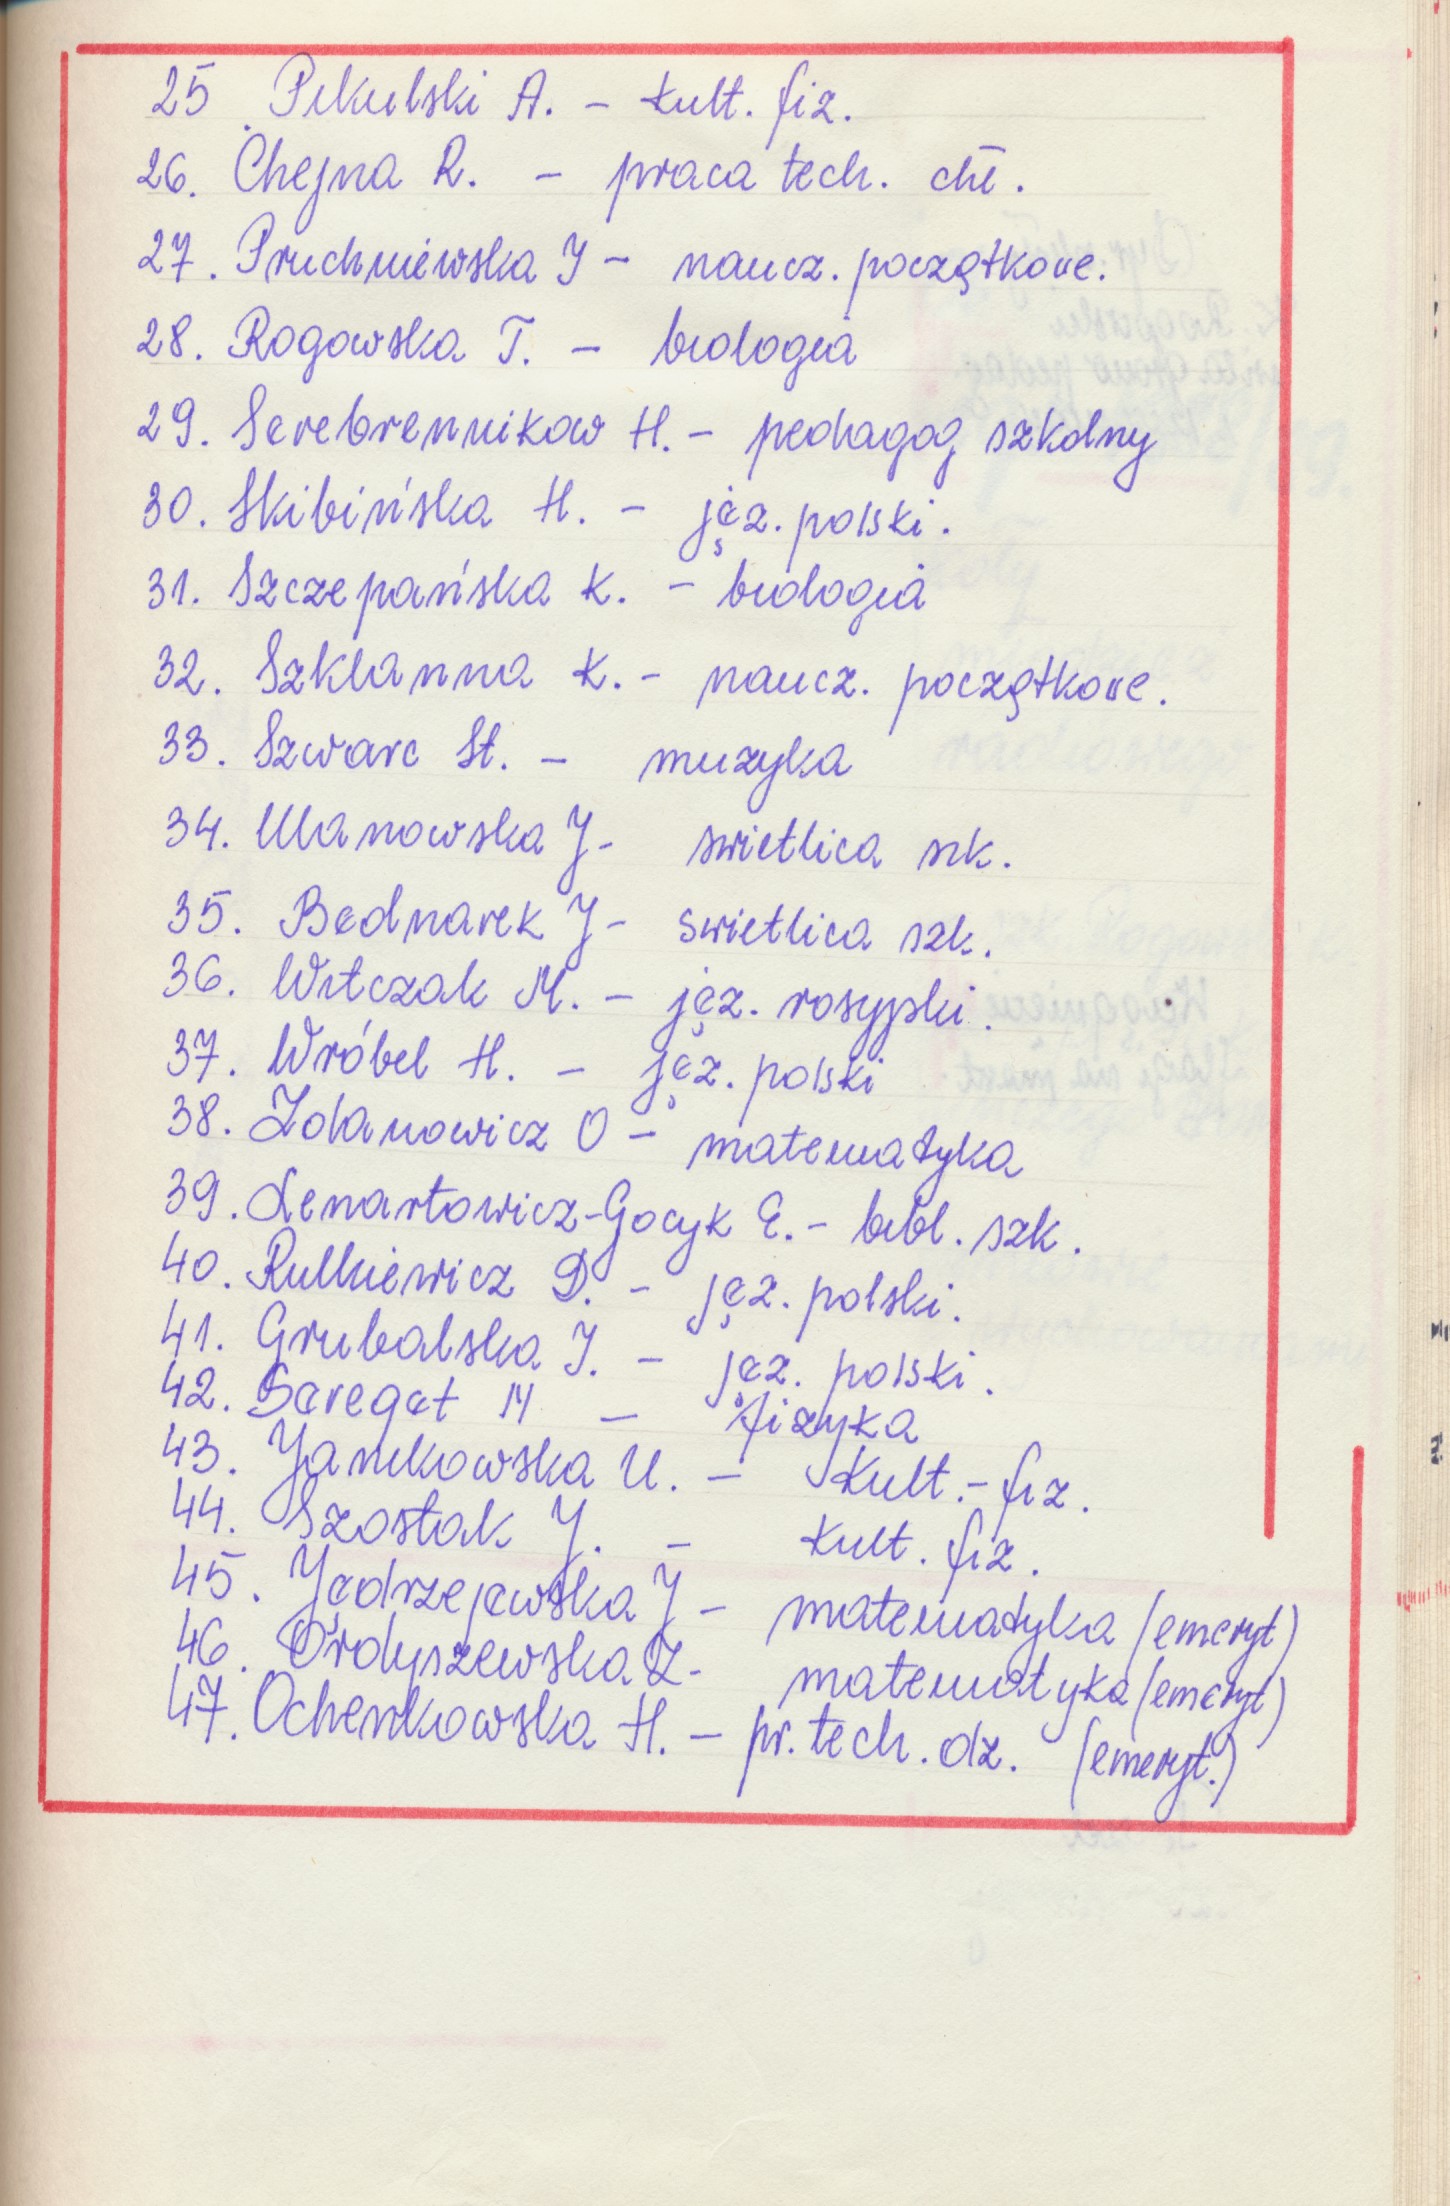 25. Pikulski A. – kult. fiz.
26. Chejna R. – praca tech. chł.
27. Pruchniewska J – naucz. początkowe.
28. Rogowska T. – biologia
29. Serebrennikow H. – pedagog szkolny
30. Skibińska H. – jęz. polski.
31. Szczepańska K. – biologia
32. Szklanna K. – naucz. początkowe.
33. Szwarc St. – muzyka
34. Ulanowska J – swietlica szk.
35. Bednarek J – swietlica szk.
36. Witczak M. – jęz. rosyjski.
37. Wróbel H. – jęz. polski
38. Zdanowicz O – matematyka
39. Lenartowicz-Gocyk E. – bibl. szk.
40. Rulkiewicz D. – jęz. polski.
41. Grubalska J. – jęz. polski.
42. Sereget M – fizyka
43. Janikowska U. – Kult. – fiz.
44. Szostak J. – kult. fiz.
45. Jędrzejewska J – matematyka (emeryt)
46. Ordyszewska Z – matematyka (emeryt)
47. Ochenkowska H. – pr. tech. dz. (emeryt.)